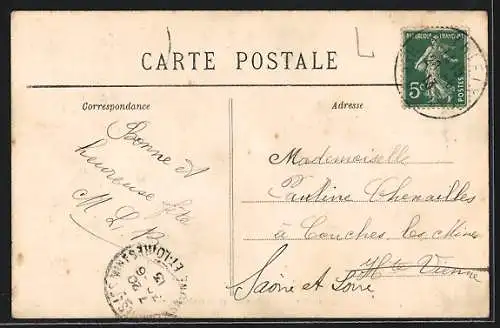 CARTE POSTALE
REPUBLIQUE FRANÇAISE
5c
POSTES
Correspondance
Adresse
Bonne et
heureuse fête
M. L. B
Mademoiselle
Pauline Chenailles
à Couches les Mines
Hte Vienne
Saône et Loire
ET-LOIRE